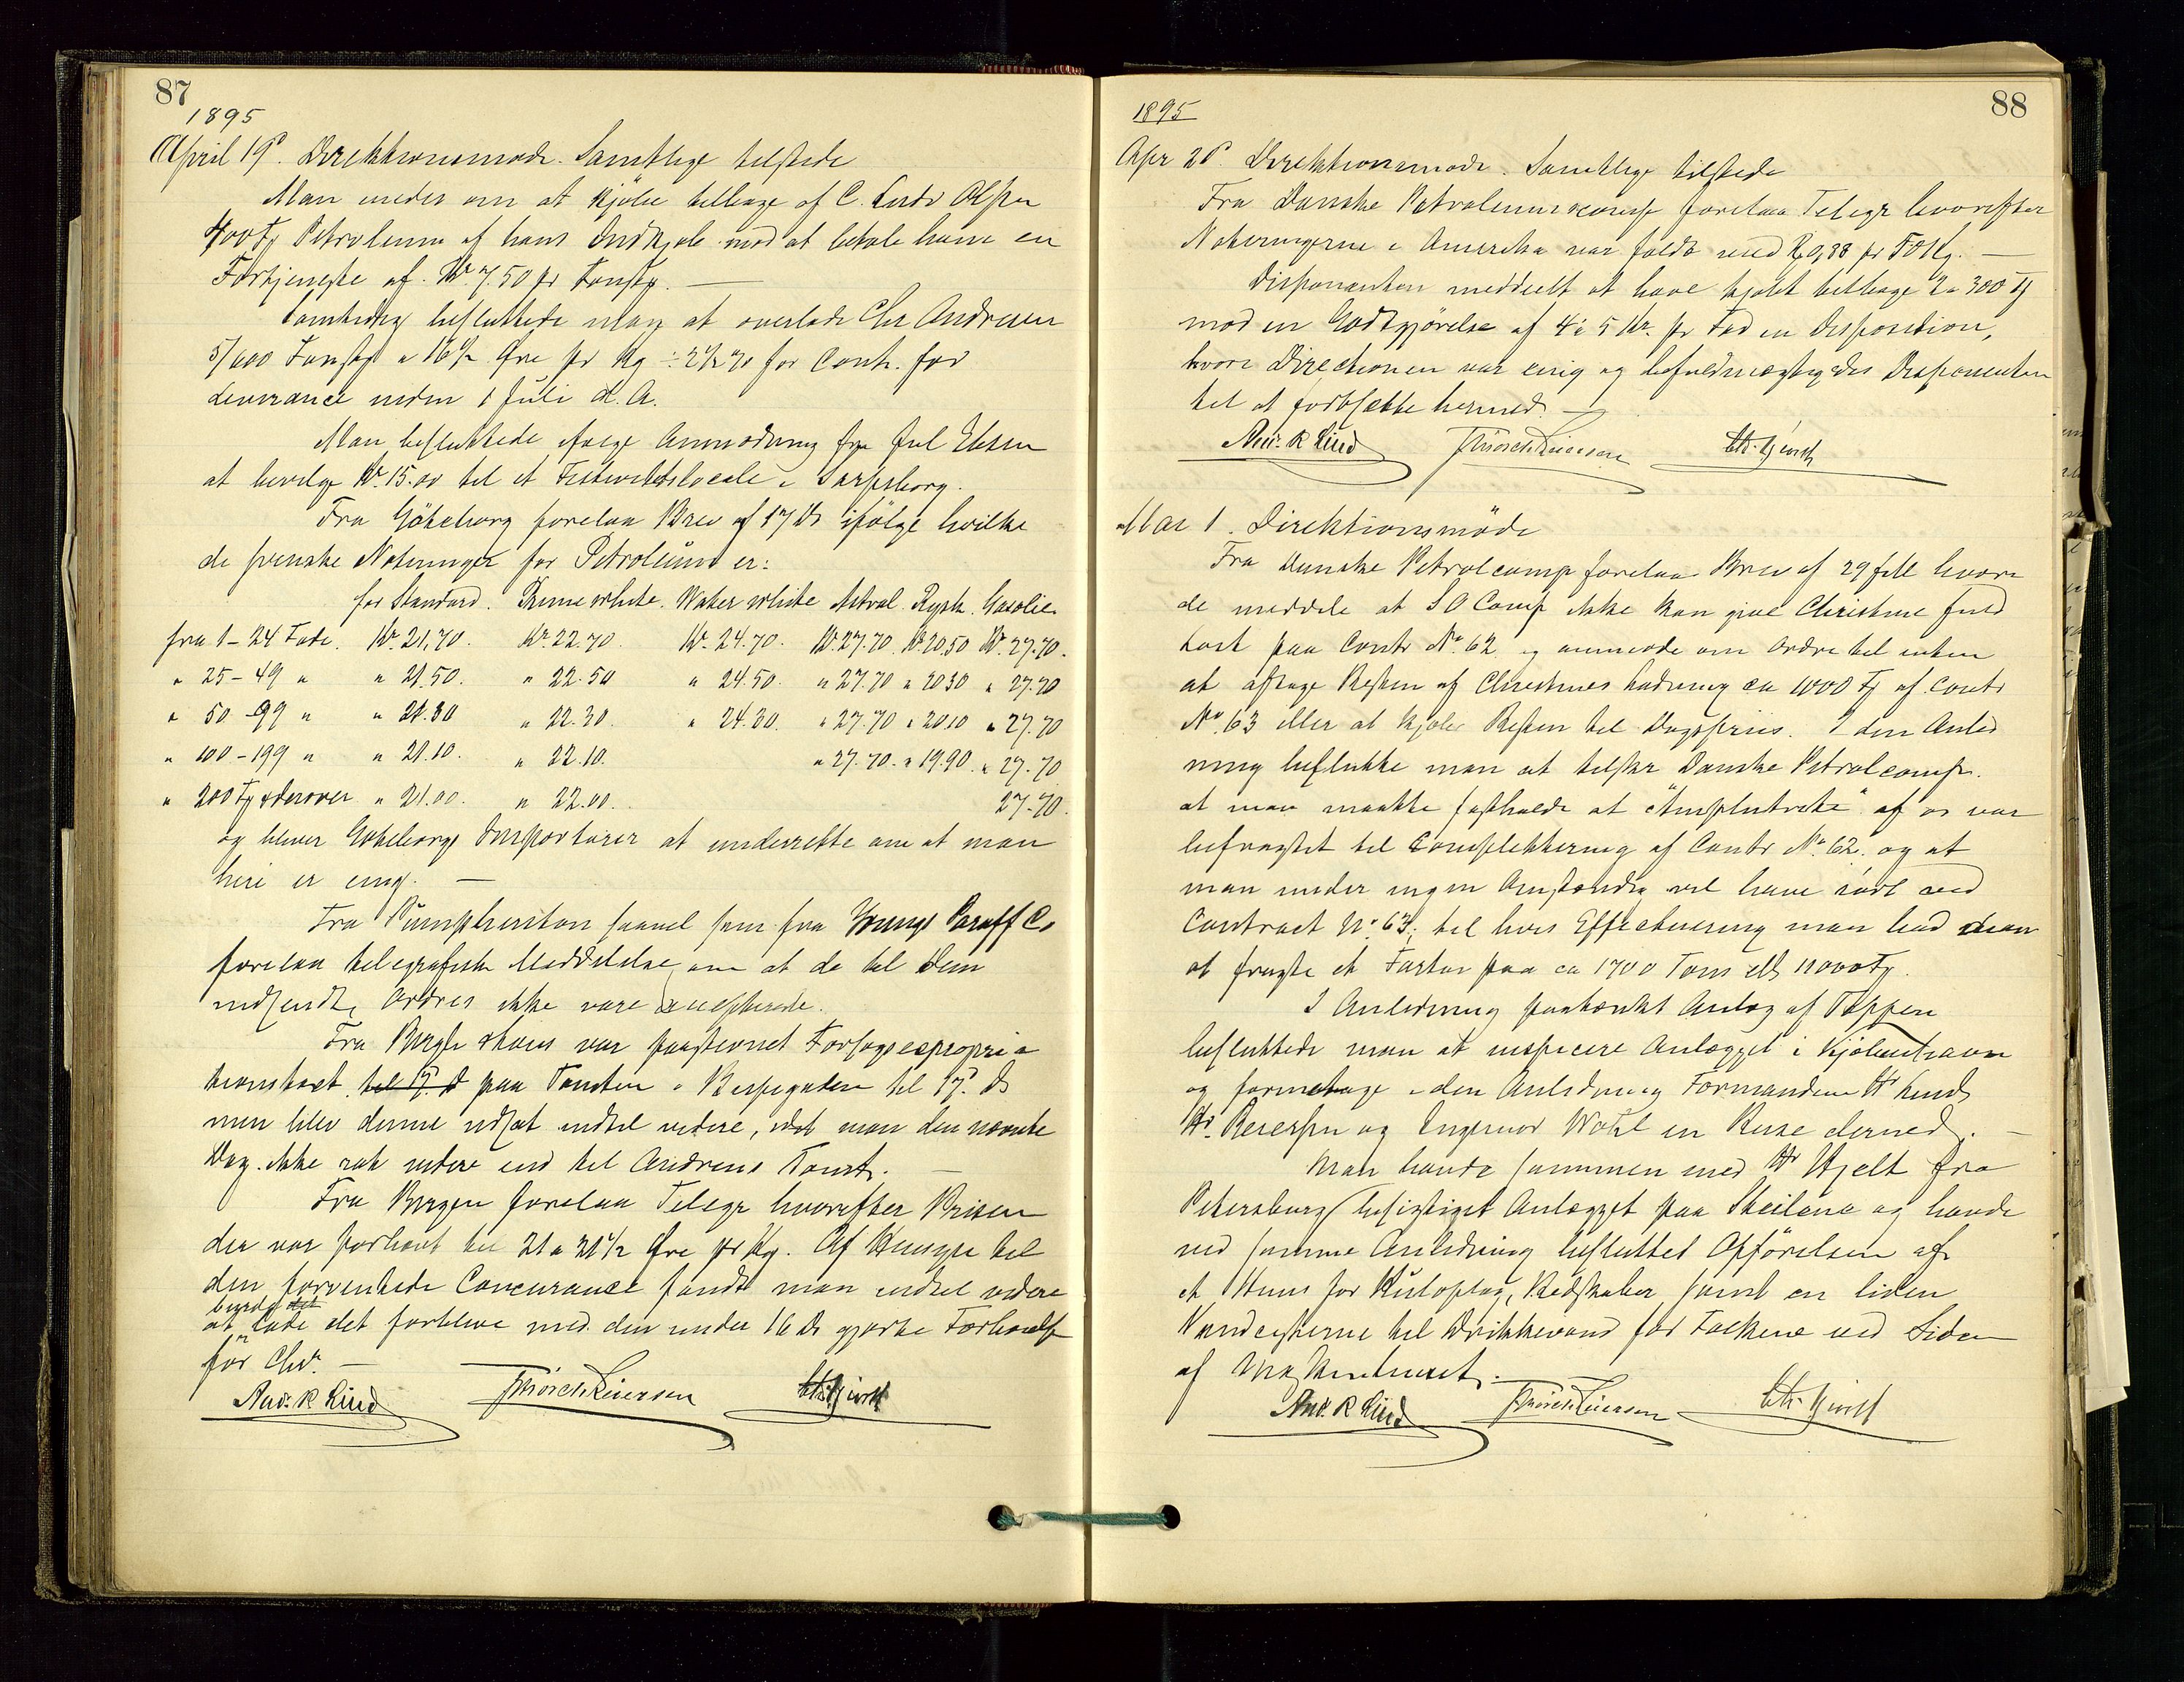 87
1895
April 19d. Direktionsmøde. Samtlige tilstede
Man enedes om at kjøbe tilbage af C. Ludv Olsen
400 Fj Petroleum af hans Indkjøb mod at betale ham en
Fortjeneste af Kr. 7.50 pr Fustg. —
Samtidig besluttede man at overlade Chr Andresen
5/600 Fustg a 16 1/2 Øre pr Kg ÷ 2 1/2 % for Cont. for
Leverance inden 1 Juli d. A.
Man besluttede ifølge Anmodning fra Jul Ebsen
at bevilge Kr. 15.00 til et Festivitetslocale i Sarpsborg.
Fra Göteborg forelaa Brev af 17 Ds ifølge hvilke
de svenske Noteringer for Petroleum er:
for Standard. Prime white. Water white Astral. Rysk. Gasolie
fra 1 - 24 Fade. Kr. 21,70. Kr. 22.70. Kr. 24.70. Kr. 27.70. Kr. 20.50 Kr. 27.70.
" 25 - 49 " " 21.50. " 22.50 " 24.50. " 27.70 " 20 30 " 27.70
" 50 - 99 " " 21.30 " 22.30. " 24.30. " 27.70 " 20.10 " 27.70
" 100 - 199 " " 21.10. " 22.10. " 27.70. " 19.90. " 27.70
" 200 Fj & derover " 21.00. " 22.00. 27.70.
og bliver Göteborgs Importører at underrette om at man
heri er enig. —
Fra Pumpherston saavel som fra Youngs Paraff Co
forelaa telegrafisk Meddelelse om at de til dem
indsendte Ordres ikke vare accepterede.
Fra Bergh & Høeis var paastevnet Forsøgsexpropria
tionstaxt til 17 d paa Tomten i Bispegaden til 17d. Ds
men blev denne udsat indtil videre, idet man den nævnte
Dag ikke rak videre end til Andrens Tomt. —
Fra Bergen forelaa Telegr hvorefter Prisen
der var forhøiet til 21 a 21 1/2 Øre pr Kg. Af Hensyn til
den forventede Concurance fandt man indtil videre
burde det
at lade det forblive med den under 16 Ds gjorte Forhøielse
for Chr.a —
And. R Lind Thv Mörch Reiersen Chr. Gjerth
1895
88
Apr 2d. Direktionsmøde. Samtlige tilstede
Fra Danske Petroleumscomp forelaa Telegr hvorefter
Noteringerne i Amerika var faldt med R 0,38 pr 50 Kg. —
Disponenten meddelt at have kjøbt tilbage 2 a 300 Fj
mod en Godtgjörelse af 4 a 5 Kr. pr Fad en Disposition,
hvori Directionen var enig og befuldmægtigedes Disponenten
til at fortsætte hermed. —
And. R Lind Thv Mörch Reiersen Chr. Gjerth
Mai 1. Direktionsmöde
Fra Danske Petrolcomp forelaa Brev af 29 f M hvori
de meddele at S O Comp ikke kan give Christine fuld
Last paa Contr No. 62 og anmode om Ordre til enten
at aftage Resten af Christines Ladning ca 1000 Fj af Contr
No. 63 eller at kjøbe Resten til Dagspris. I den Anled
ning beslutte man at tilskr Danske Petrolcomp.
at man maatte fastholde at "Amphitrite" af os var
befragtet til Complettering af Contr No. 62. og at
man under ingen Omstændig vil have rört ved
Contract No. 63, til hvis Effectuering man lod dem
at fragte et Fartøi paa ca 1700 Tons elr 11000 Fj.
I Anledning paatænkt Anlæg af Tappen
besluttede man at inspicere Anlægget i Kjøbenhavn
og foretage i den Anledning Formanden Hr Lind,
Hr. Reiersen og Ingeniør Wohl en Reise derned. —
Man havde sammen med Hr Hjelt fra
Petersburg besigtiget Anlægget paa Steilene og havde
ved samme Anledning besluttet Opførelsen af
et Huus for Kuloplag, Redskaber samt en liden
Vandcisterne til Drikkevand for Folkene ved Siden
af Maskinhuset.
And. R Lind Thv Mörch Reiersen Chr. Gjerth